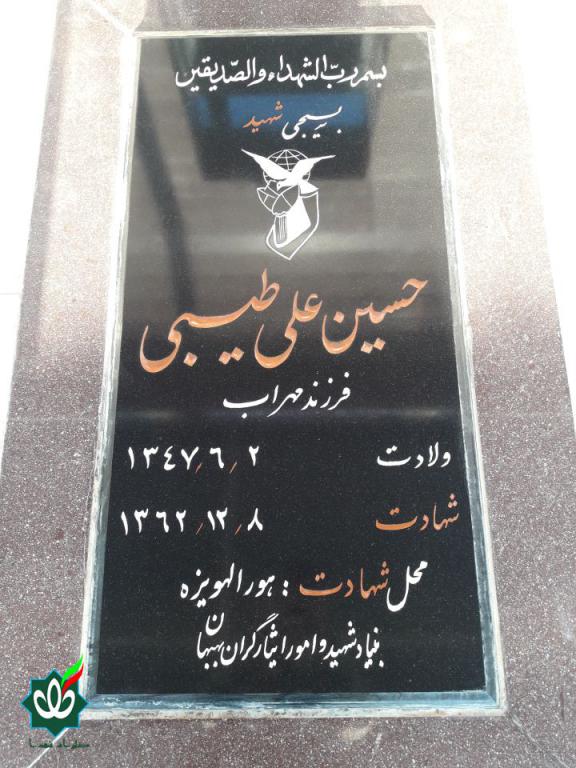 بسم ربّ الشهداء والصّدیقین
بسیجی شهید
حسین علی طیبی
فرزند مهراب
ولادت ۱۳۴۷٫۶٫۲
شهادت ۱۳۶۲٫۱۲٫۸
محل شهادت : هورالهویزه
بنیاد شهید و امور ایثارگران بهبهان